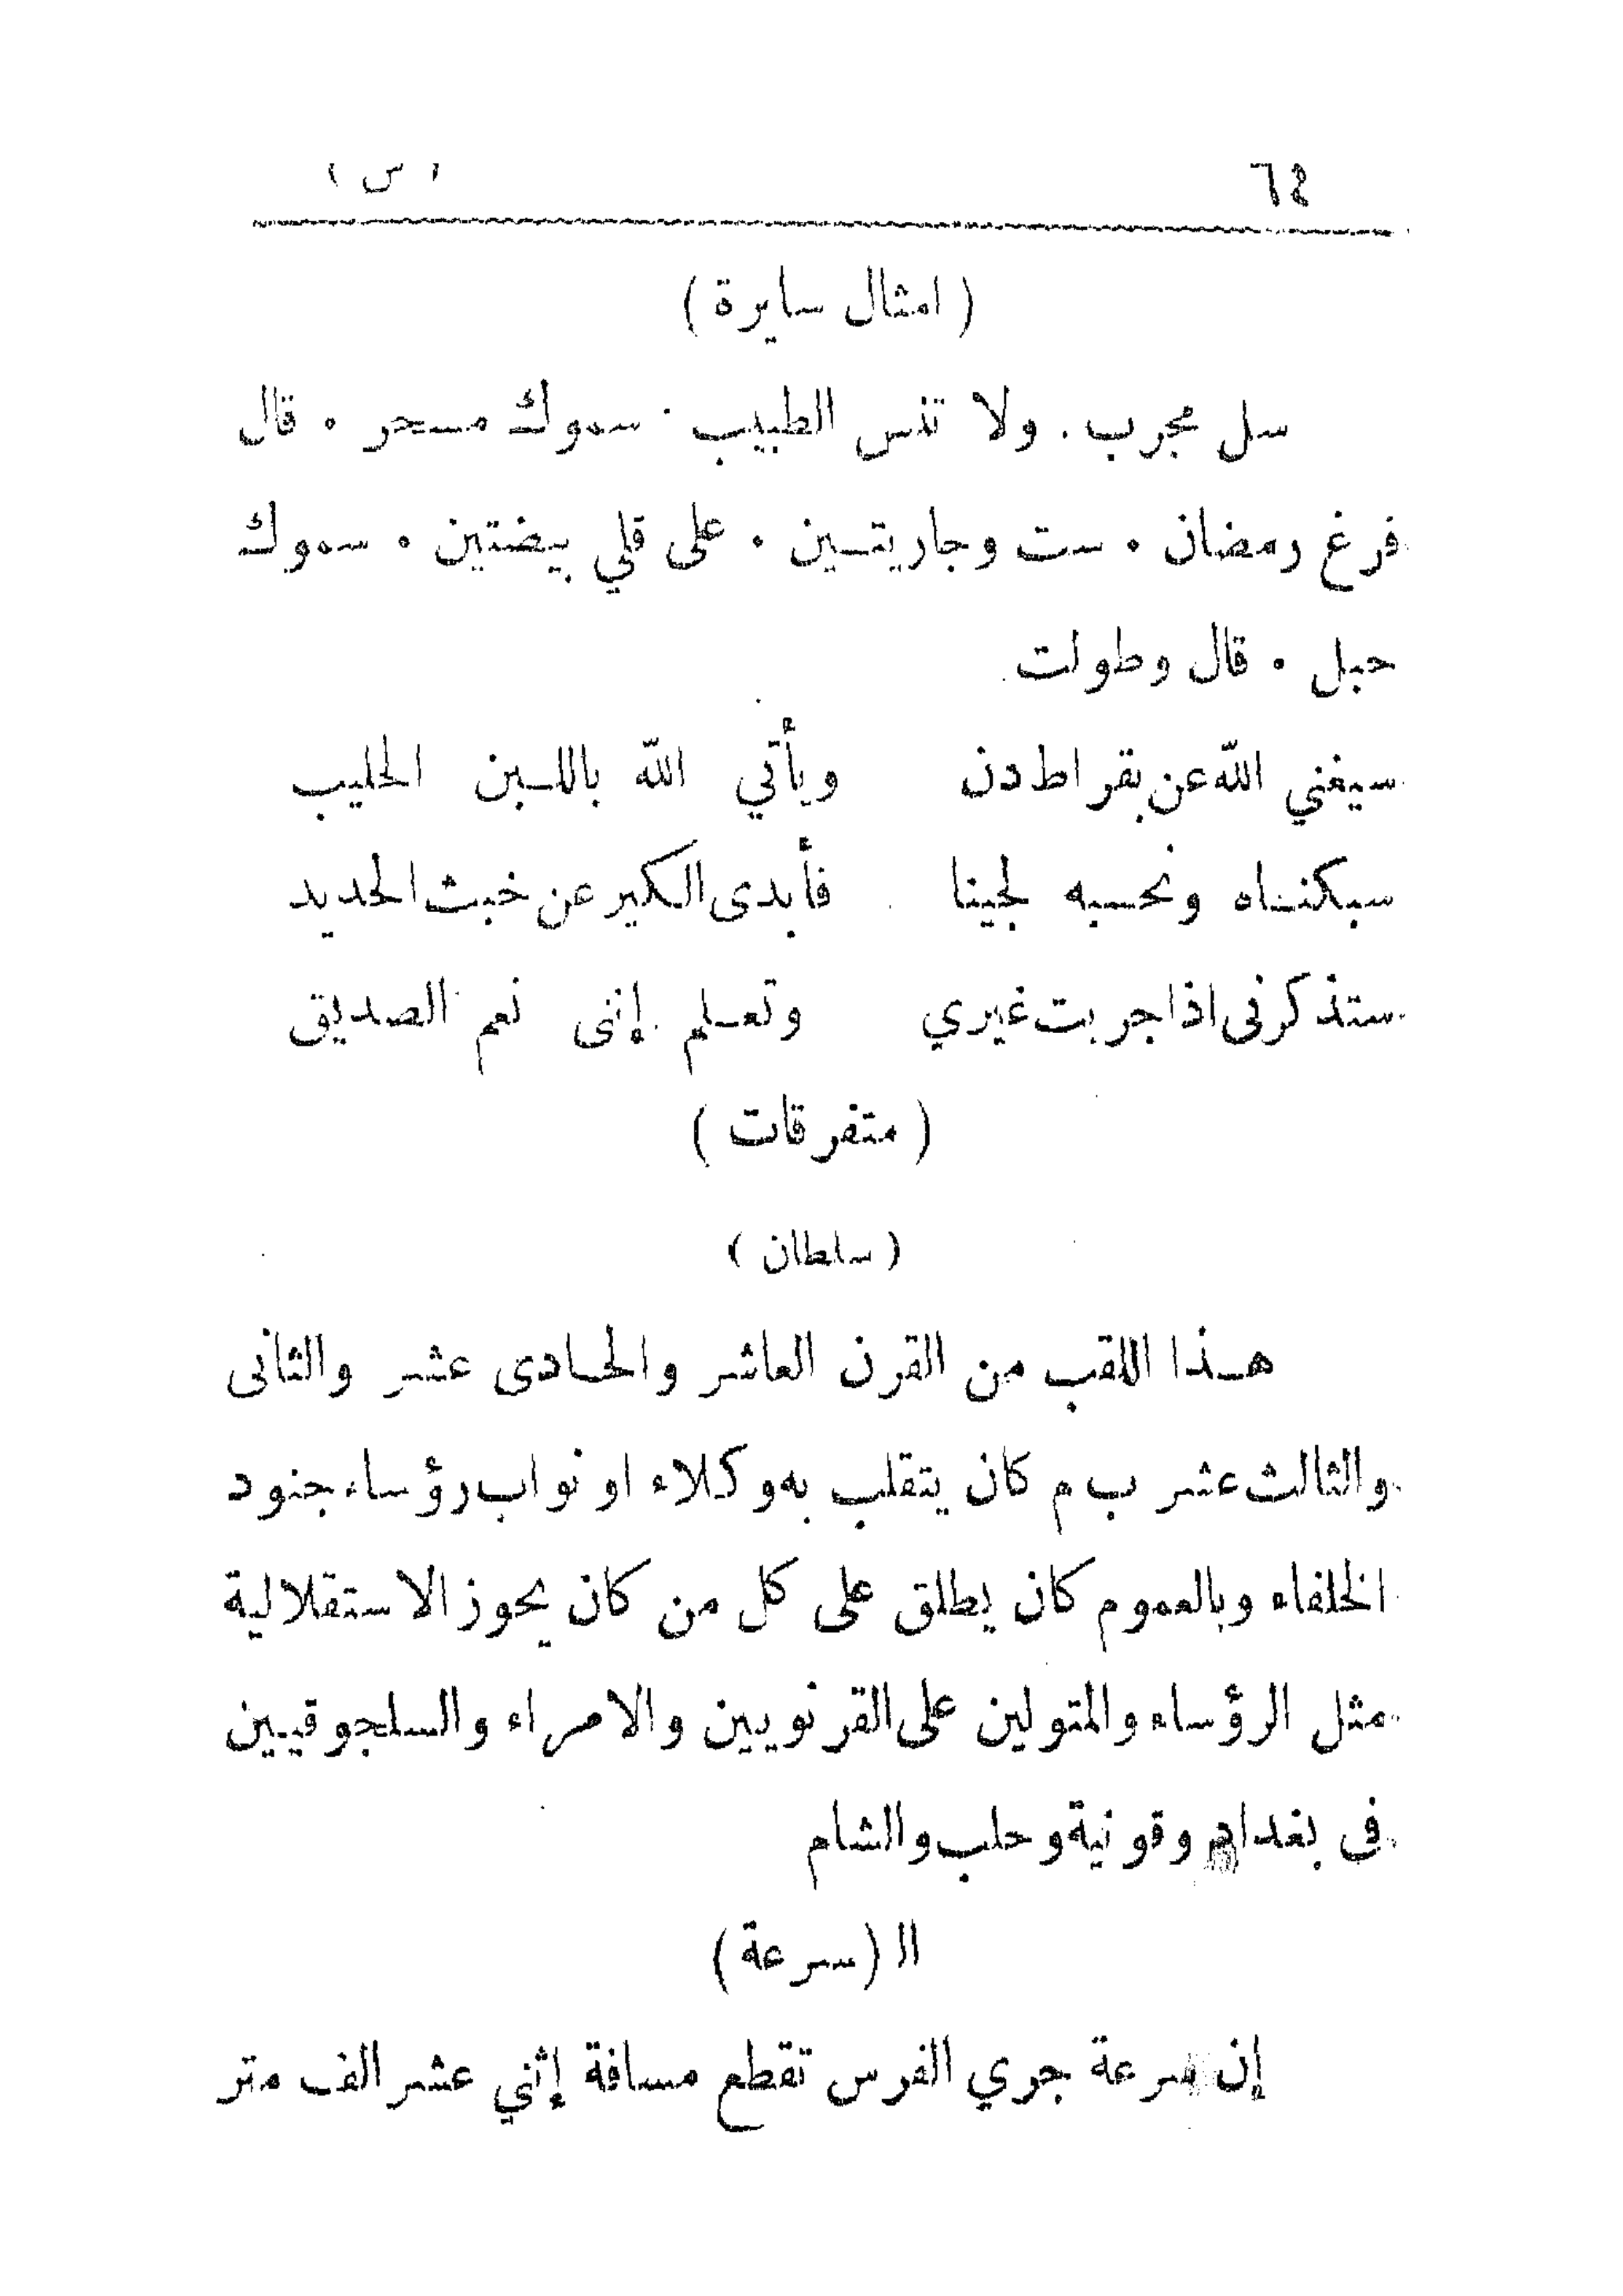 ٦٤ (س)
(امثال سايرة)
سل مجرب. ولا تنس الطبيب. سموك مسحر. قال
فرغ رمضان. ست وجاريتين. على قلي بيضتين. سموك
حبل. قال وطولت
سيغني الله عن بقراط دن ويأتي الله باللبن الحليب
سبكناه ونحسبه لجينا فأبدى الكير عن خبث الحديد
ستذكرنى اذا جربت غيري وتعلم إننى نعم الصديق
(متفرقات)
(سلطان)
هذا اللقب من القرن العاشر والحادى عشر والثانى
والثالث عشر ب م كان يتقلب به وكلاء او نواب رؤساء جنود
الخلفاء وبالعموم كان يطلق على كل من كان يحوز الاستقلالية
مثل الرؤساء والمتولين على القرنويين والامراء والسلجوقيين
فى بغداد وقونية وحلب والشام
ال (سرعة)
إن سرعة جري الفرس تقطع مسافة إثني عشر الف متر